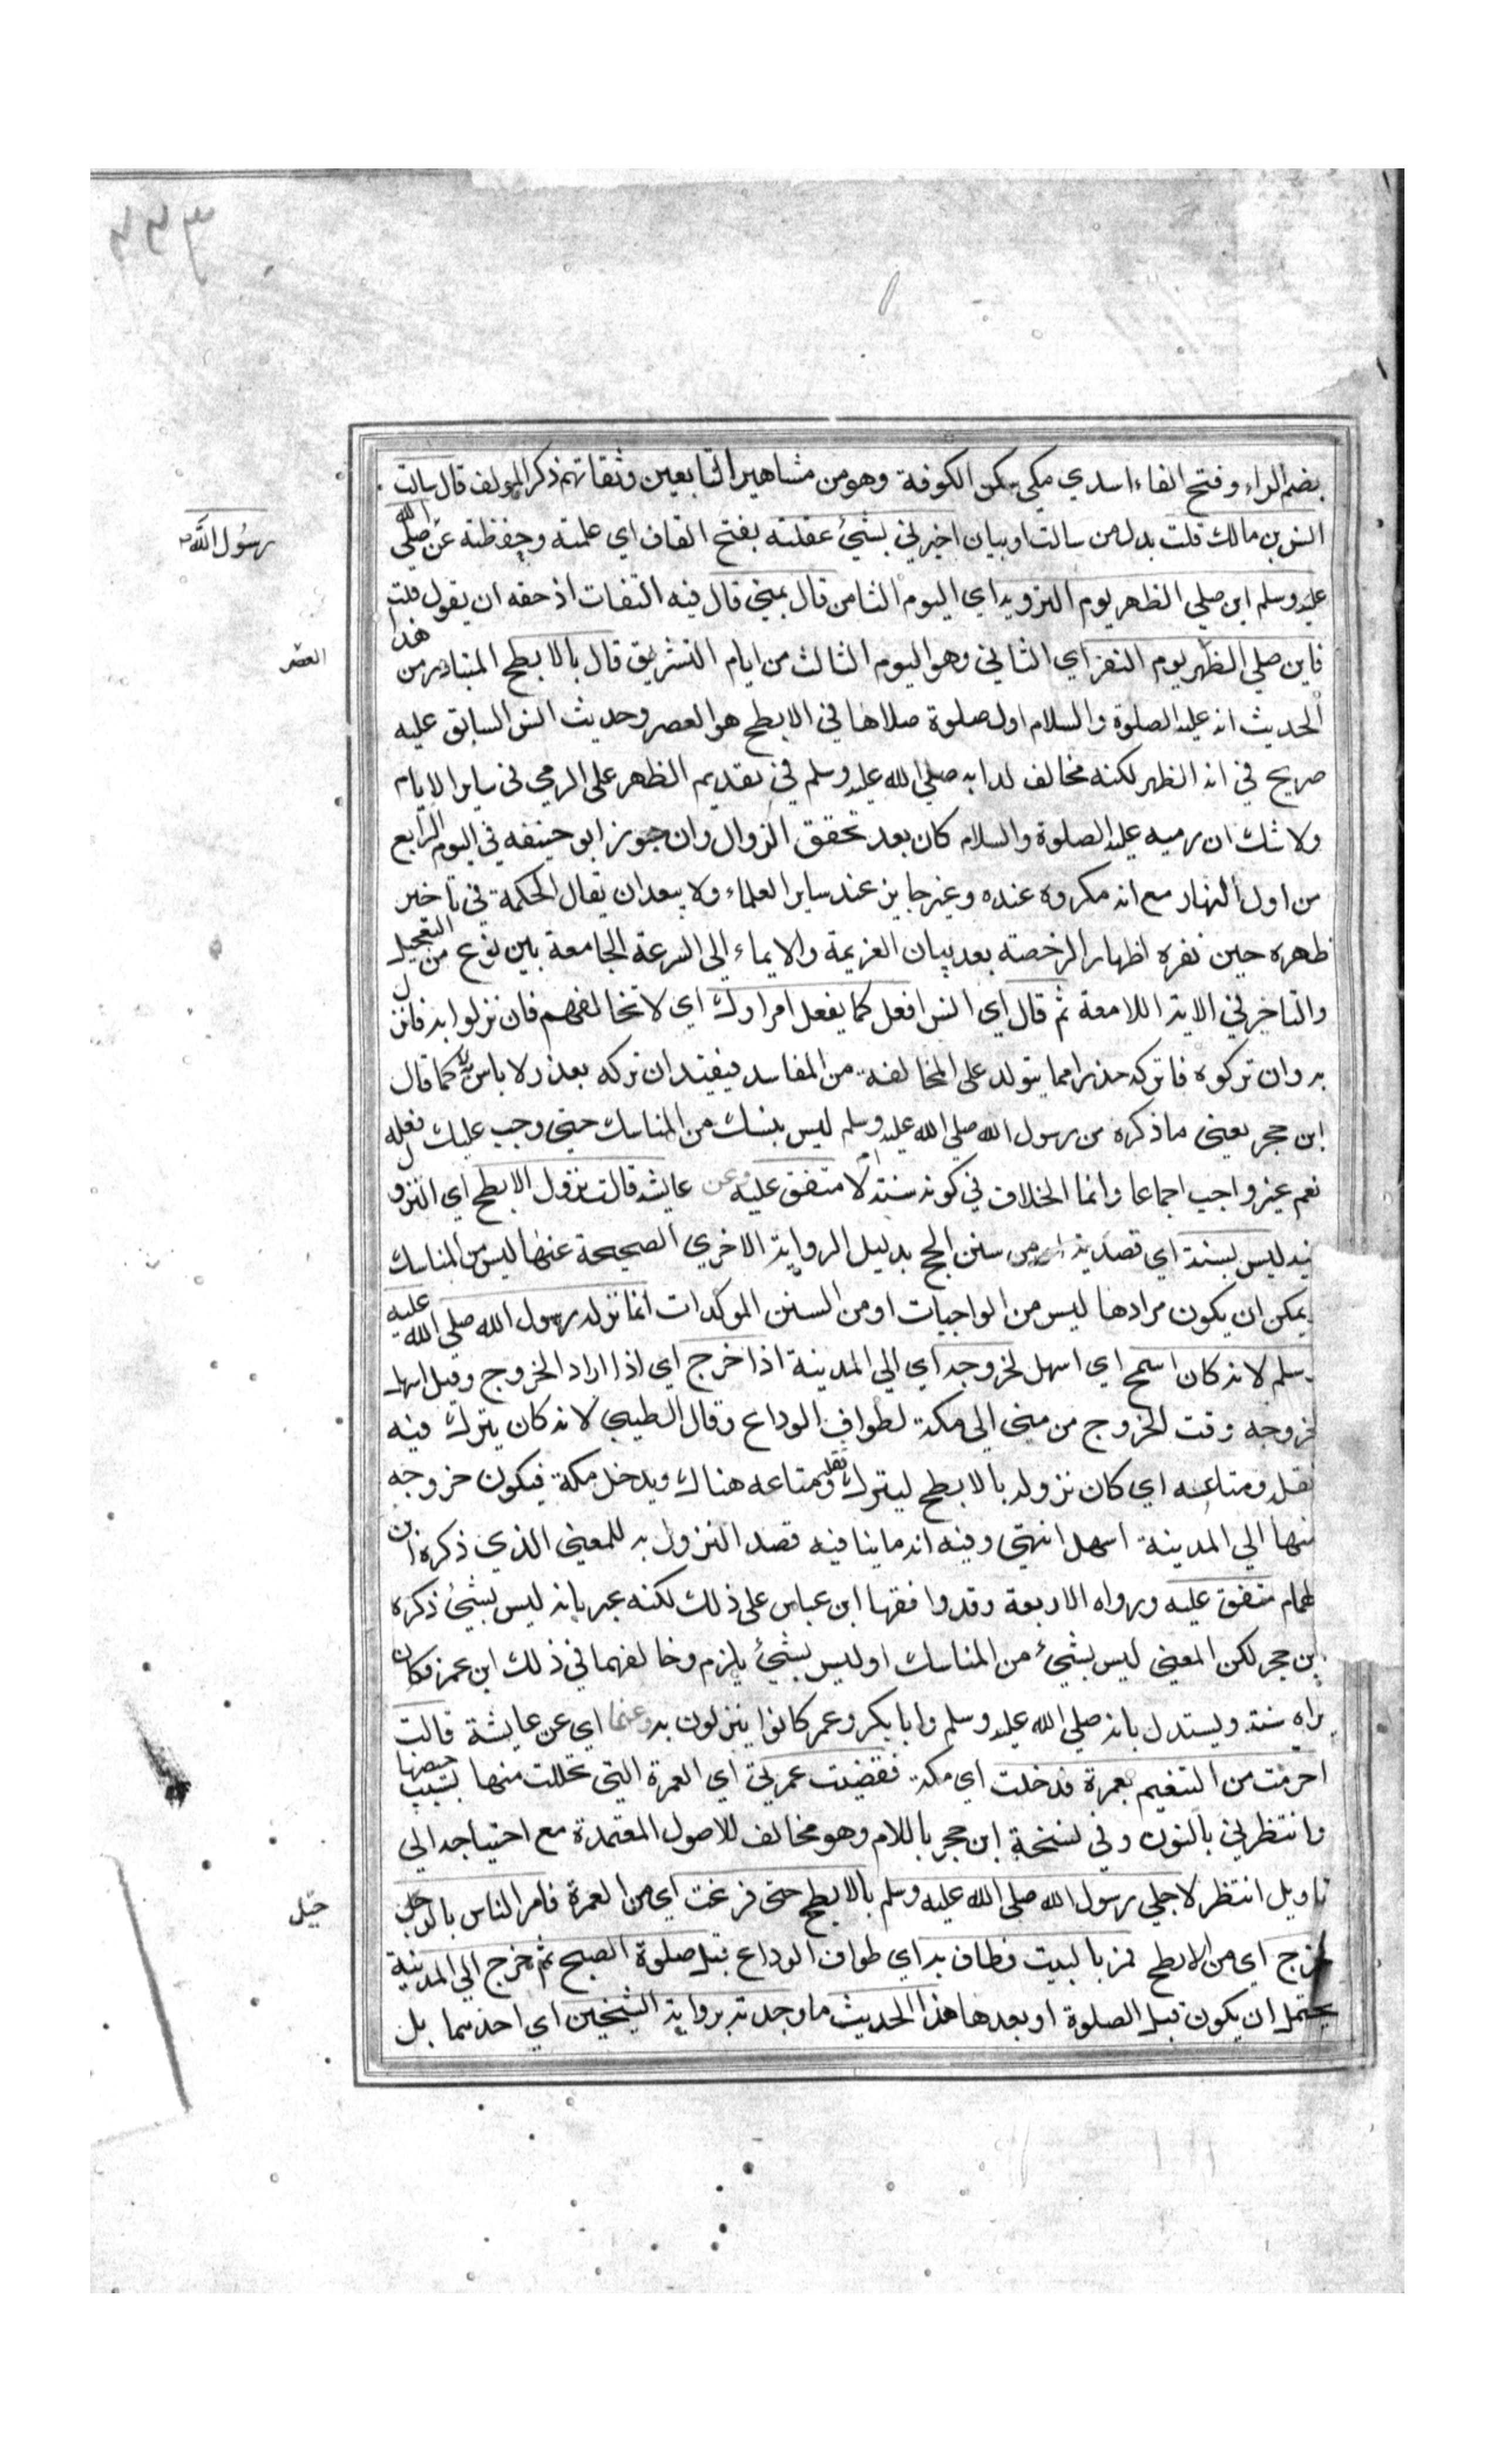 ٣٤٣
بضم الراء وفتح الفاء اسدي مكي سكن الكوفة وهو من مشاهير التابعين وثقاتهم ذكر المولف قال سالت
انس بن مالك قلت بدل من سالت او بيان اخبرني بشيئ عقلته بفتح القاف اي علمته وحفظته عن صلي الله
رسول الله
عليه وسلم اين صلي الظهر يوم التروية اي اليوم الثامن قال بمني قال فيه التفات اذ حقه ان يقول قلت
فاين صلي الظهر يوم النفر اي الثاني وهو اليوم الثالث من ايام التشريق قال بالابطح المتبادر من هذا
العصر
الحديث انه عليه الصلوة والسلام اول صلوة صلاها في الابطح هو العصر وحديث انس السابق عليه
صريح في انه الظهر لكنه مخالف لدابه صلي الله عليه وسلم في تقديم الظهر على الرمي في ساير الايام
ولا شك ان رميه عليه الصلوة والسلام كان بعد تحقق الزوال وان جوز ابو حنيفه في اليوم الرابع
من اول النهار مع انه مكروه عنده وغير جايز عند ساير العلماء ولا يبعد ان يقال الحكمة في تاخير
ظهره حين نفره اظهار الرخصته بعد بيان العزيمة والايماء الى السرعة الجامعة بين نوع من التعجيل
والتاخير في الاية اللامعة ثم قال اي انس افعل كما يفعل امراوك اي لا تخالفهم فان نزلوا به فانزل
به وان تركوه فاتركه حذرا مما يتولد على المخالفة من المفاسد فيفيد ان تركه بعذر لا باس به كما قال
ابن حجر يعني ما ذكره من رسول الله صلي الله عليه وسلم ليس بنسك من المناسك حتي وجب عليك فعله
نعم غير واجب اجماعا وانما الخلاف في كونه سنة ام لا متفق عليه وعن عايشه قالت نزول الابطح اي النزول
فيه ليس بسنة اي قصدية من سنن الحج بدليل الرواية الاخري الصحيحة عنها ليس من المناسك
يمكن ان يكون مرادها ليس من الواجبات او من السنن الموكدات انما نزله رسول الله صلي الله عليه
وسلم لانه كان اسمح اي اسهل لخروجه اي الي المدينة اذا خرج اي اذا اراد الخروج وقيل اسهل
خروجه وقت الخروج من مني الي مكة لطواف الوداع وقال الطيبي لانه كان يترك فيه
ثقله ومتاعه اي كان نزوله بالابطح ليترك ثقله ومتاعه هناك ويدخل مكة فيكون خروجه
منها الي المدينة اسهل انتهي وفيه انه ما ينافيه قصد النزول به للمعني الذي ذكره ابن
لهمام متفق عليه ورواه الاربعة وقد وافقها ابن عباس على ذلك لكنه عبر بانه ليس بشيئ ذكره
ابن حجر لكن المعني ليس بشيئ من المناسك او ليس بشيئ يلزم وخالفهما في ذلك ابن عمر فكان
يراه سنة ويستدل بانه صلي الله عليه وسلم وابا بكر وعمر كانوا ينزلون به وعنها اي عن عايشة قالت
احرمت من التنعيم بعمرة فدخلت اي مكة فقضيت عمرتي اي العمرة التي تحللت منها بسبب حيضها
وانتظرني بالنون وفي نسخة ابن حجر باللام وهو مخالف للاصول المعتمدة مع احتياجه الي
تاويل انتظر لاجلي رسول الله صلي الله عليه وسلم بالابطح حتى فرغت اي من العمرة فامر الناس بالرحيل
فخرج اي من الابطح فمر بالبيت فطاف به اي طواف الوداع قبل صلوة الصبح ثم خرج الي المدينة
يحتمل ان يكون قبل الصلوة او بعدها هذا الحديث ما وجدته برواية الشيخين اي احدهما بل